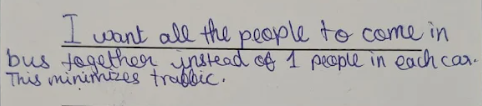 I want all the people to come in
bus together instead of 1 people in each car.
This minimizes trabbic.